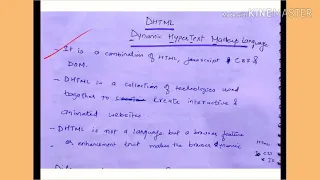 DHTML
Dynamic HyperText Markup Language
- It is a combination of HTML, javascript & CSS &
DOM.
- DHTML is a collection of technologies used
together to create interactive &
animated websites.
- DHTML is not a language but a browser feature
or enhancement that makes the browser dynamic